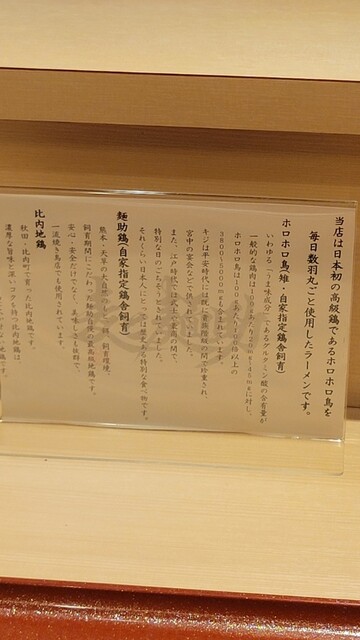 当店は日本初の高級鶏であるホロホロ鳥を
毎日数羽丸ごと使用したラーメンです。
ホロホロ鳥雉・自家指定鶏舎飼育)
いわゆる「うま味成分」であるグルタミン酸の含有量が
一般的な鶏肉は100gあたり20mg~45mgに対し、
ホロホロ鳥は100gあたり1100倍以上の
3800~5000mgも含まれています。
キジは平安時代には既に貴族階級の間で珍重され、
宮中の宴会などで供されてました。
また、江戸時代では武士や豪商の間で、
特別な日のごちそうとされてました。
それくらい日本人にとっては歴史ある特別な食べ物です。
麺助鶏(自家指定鶏舎飼育)
熊本・天草の大自然の
飼育環境、
飼育期間にこだわった麺助自慢の最高級地鶏です。
安心・安全だけでなく、美味しさも抜群で、
一流焼き鳥店でも使用されています。
比内地鶏
秋田・比内町で育った比内地鶏です。
濃厚な旨味と深いコクを持つ比内地鶏は、